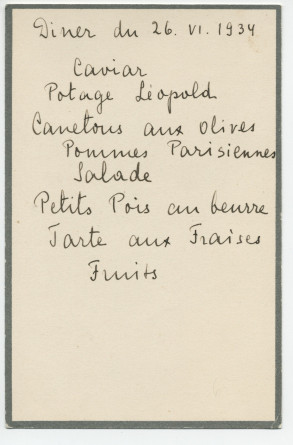 Diner du 26. VI. 1934
Caviar
Potage Léopold
Canetons aux olives
Pommes Parisiennes
Salade
Petits Pois au beurre
Tarte aux Fraises
Fruits